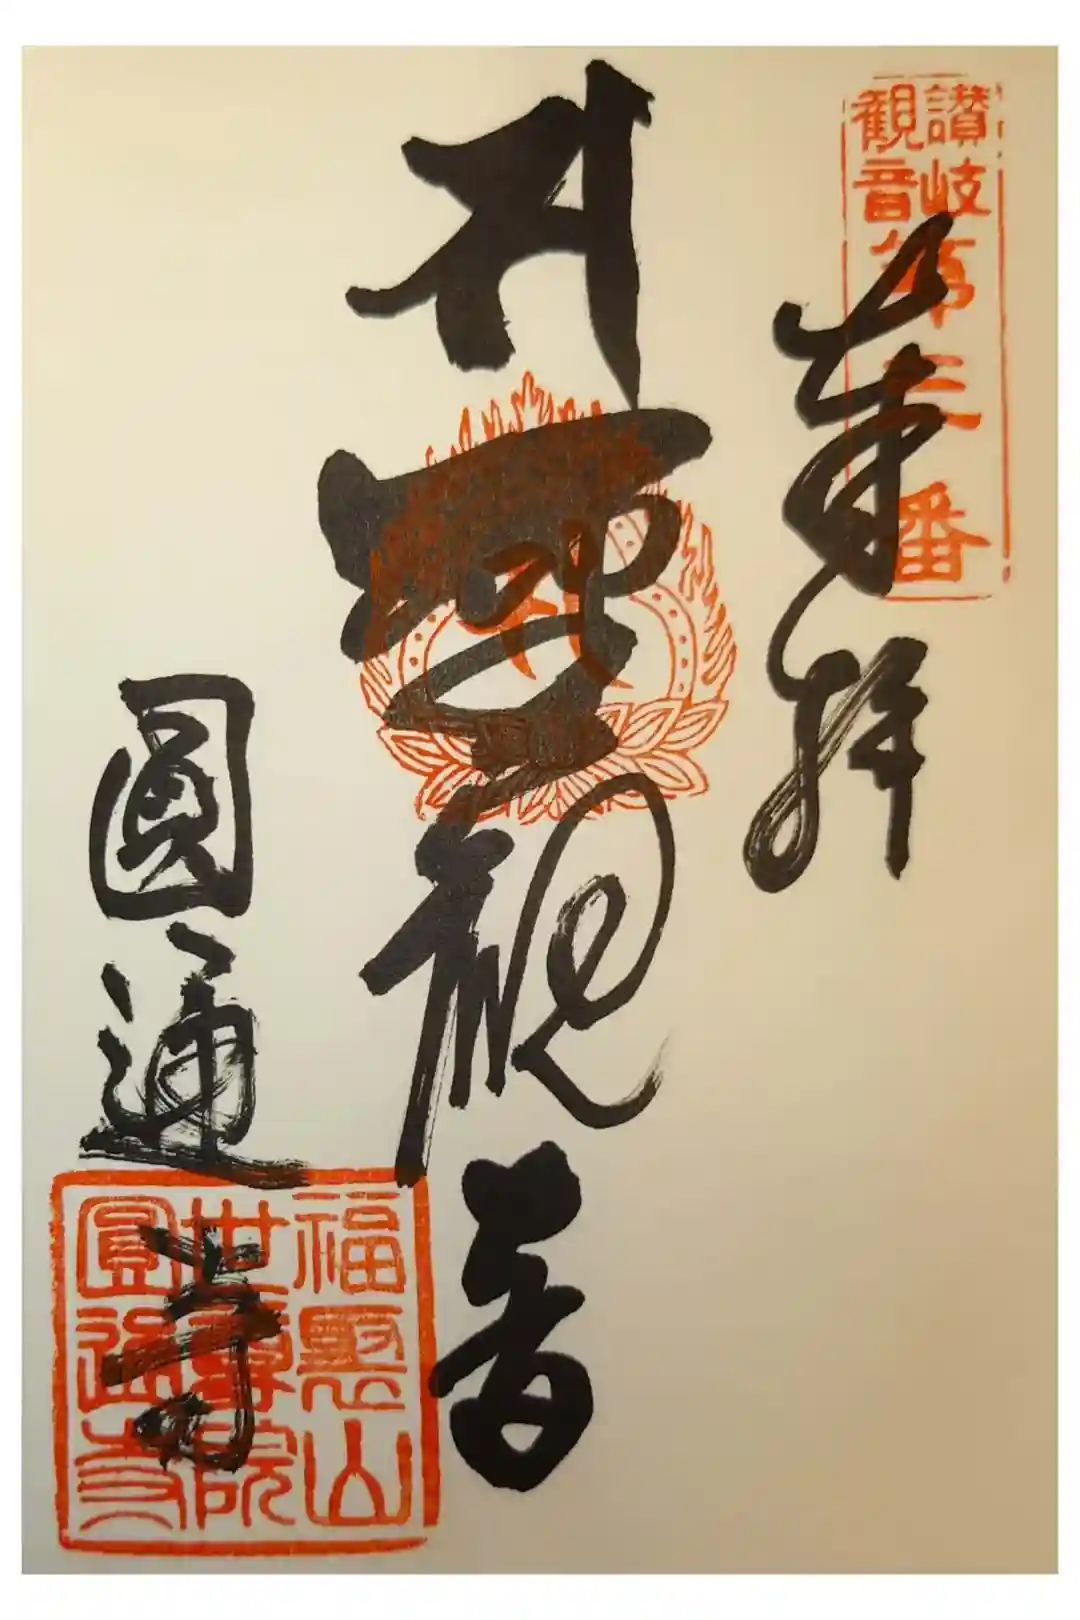 讃岐
観音
第三番
奉拝
聖観音
圓通寺
福惠山
世尊院
圓通寺